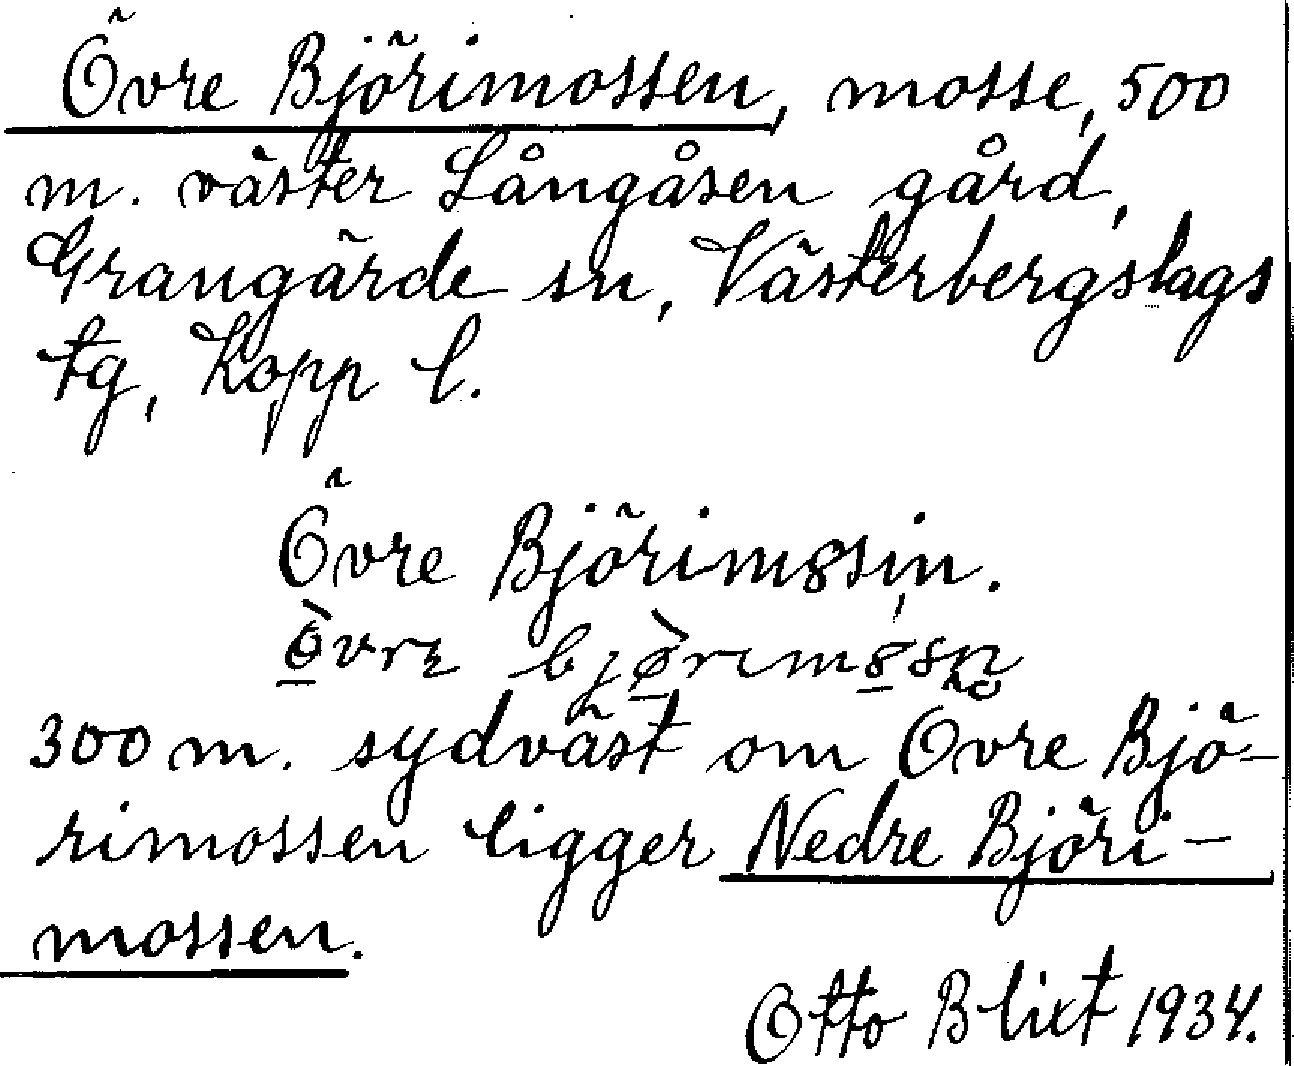 Övre Björimossen, mosse, 500
m. väster Långåsen gård,
Grangärde sn, Västerbergslags
tg, Kopp l.
Övre Björimȣsin.
300 m. sydväst om Övre Bjö-
rimossen ligger Nedre Björi-
mossen.
Otto Blixt 1934.